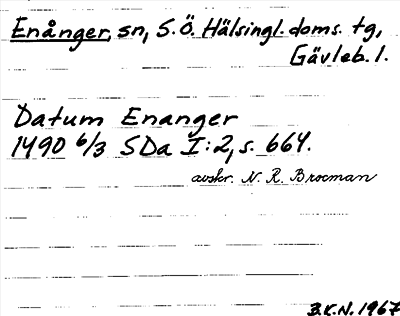 Enånger, sn, S. Ö. Hälsingl. doms. tg,
Gävleb. l.
Datum Enanger
1490 6/3 SDa I:2, s. 664.
avskr. N. R. Brocman
B.K.N. 1967